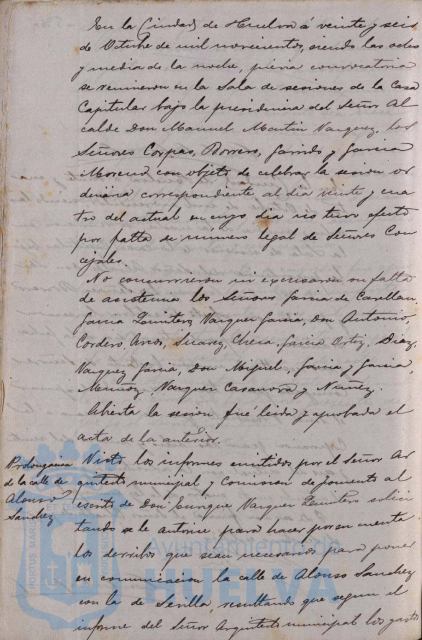 En la Ciudad de Huelva á veinte y seis
de Octubre de mil novecientos, siendo las ocho
y media de la noche, previa convocatoria
se reunieron en la Sala de sesiones de la Casa
Capitular bajo la presidencia del Señor Al
calde Don Manuel Martin Vazquez, los
Señores Corpas, Borrero, Garrido y Garcia
Moreno con objeto de celebrar la sesion or
dinaria correspondiente al dia veinte y cua
tro del actual en cuyo dia no tuvo efecto
por falta de numero legal de Señores Con
cejales.
No concurrieron ni excusaron su falta
de asistencia los Señores Garcia de
Garcia Quintero, Vazquez Garcia, Don Antonio,
Cordero, Arcos, Suarez, Checa, Garcia Ortiz, Diaz,
Vazquez Garcia, Don Miguel, Garcia y Garcia,
Muñoz, Vazquez Casanova y Nuñez.
Abierta la sesion fué leida y aprobada el
acta de la anterior.
Prolongacion
de la calle de
Alonso
Sanchez
Vistos los informes emitidos por el Señor Ar
quitecto municipal y Comision de fomento al
escrito de Don Enrique Vazquez Quintero solici
tando se le autorice para hacer por su cuenta
los derribos que sean necesarios para poner
en comunicacion la calle de Alonso Sanchez
con la de Sevilla, resultando que segun el
informe del Señor Arquitecto municipal los gastos
Ayuntamiento de
HUELVA